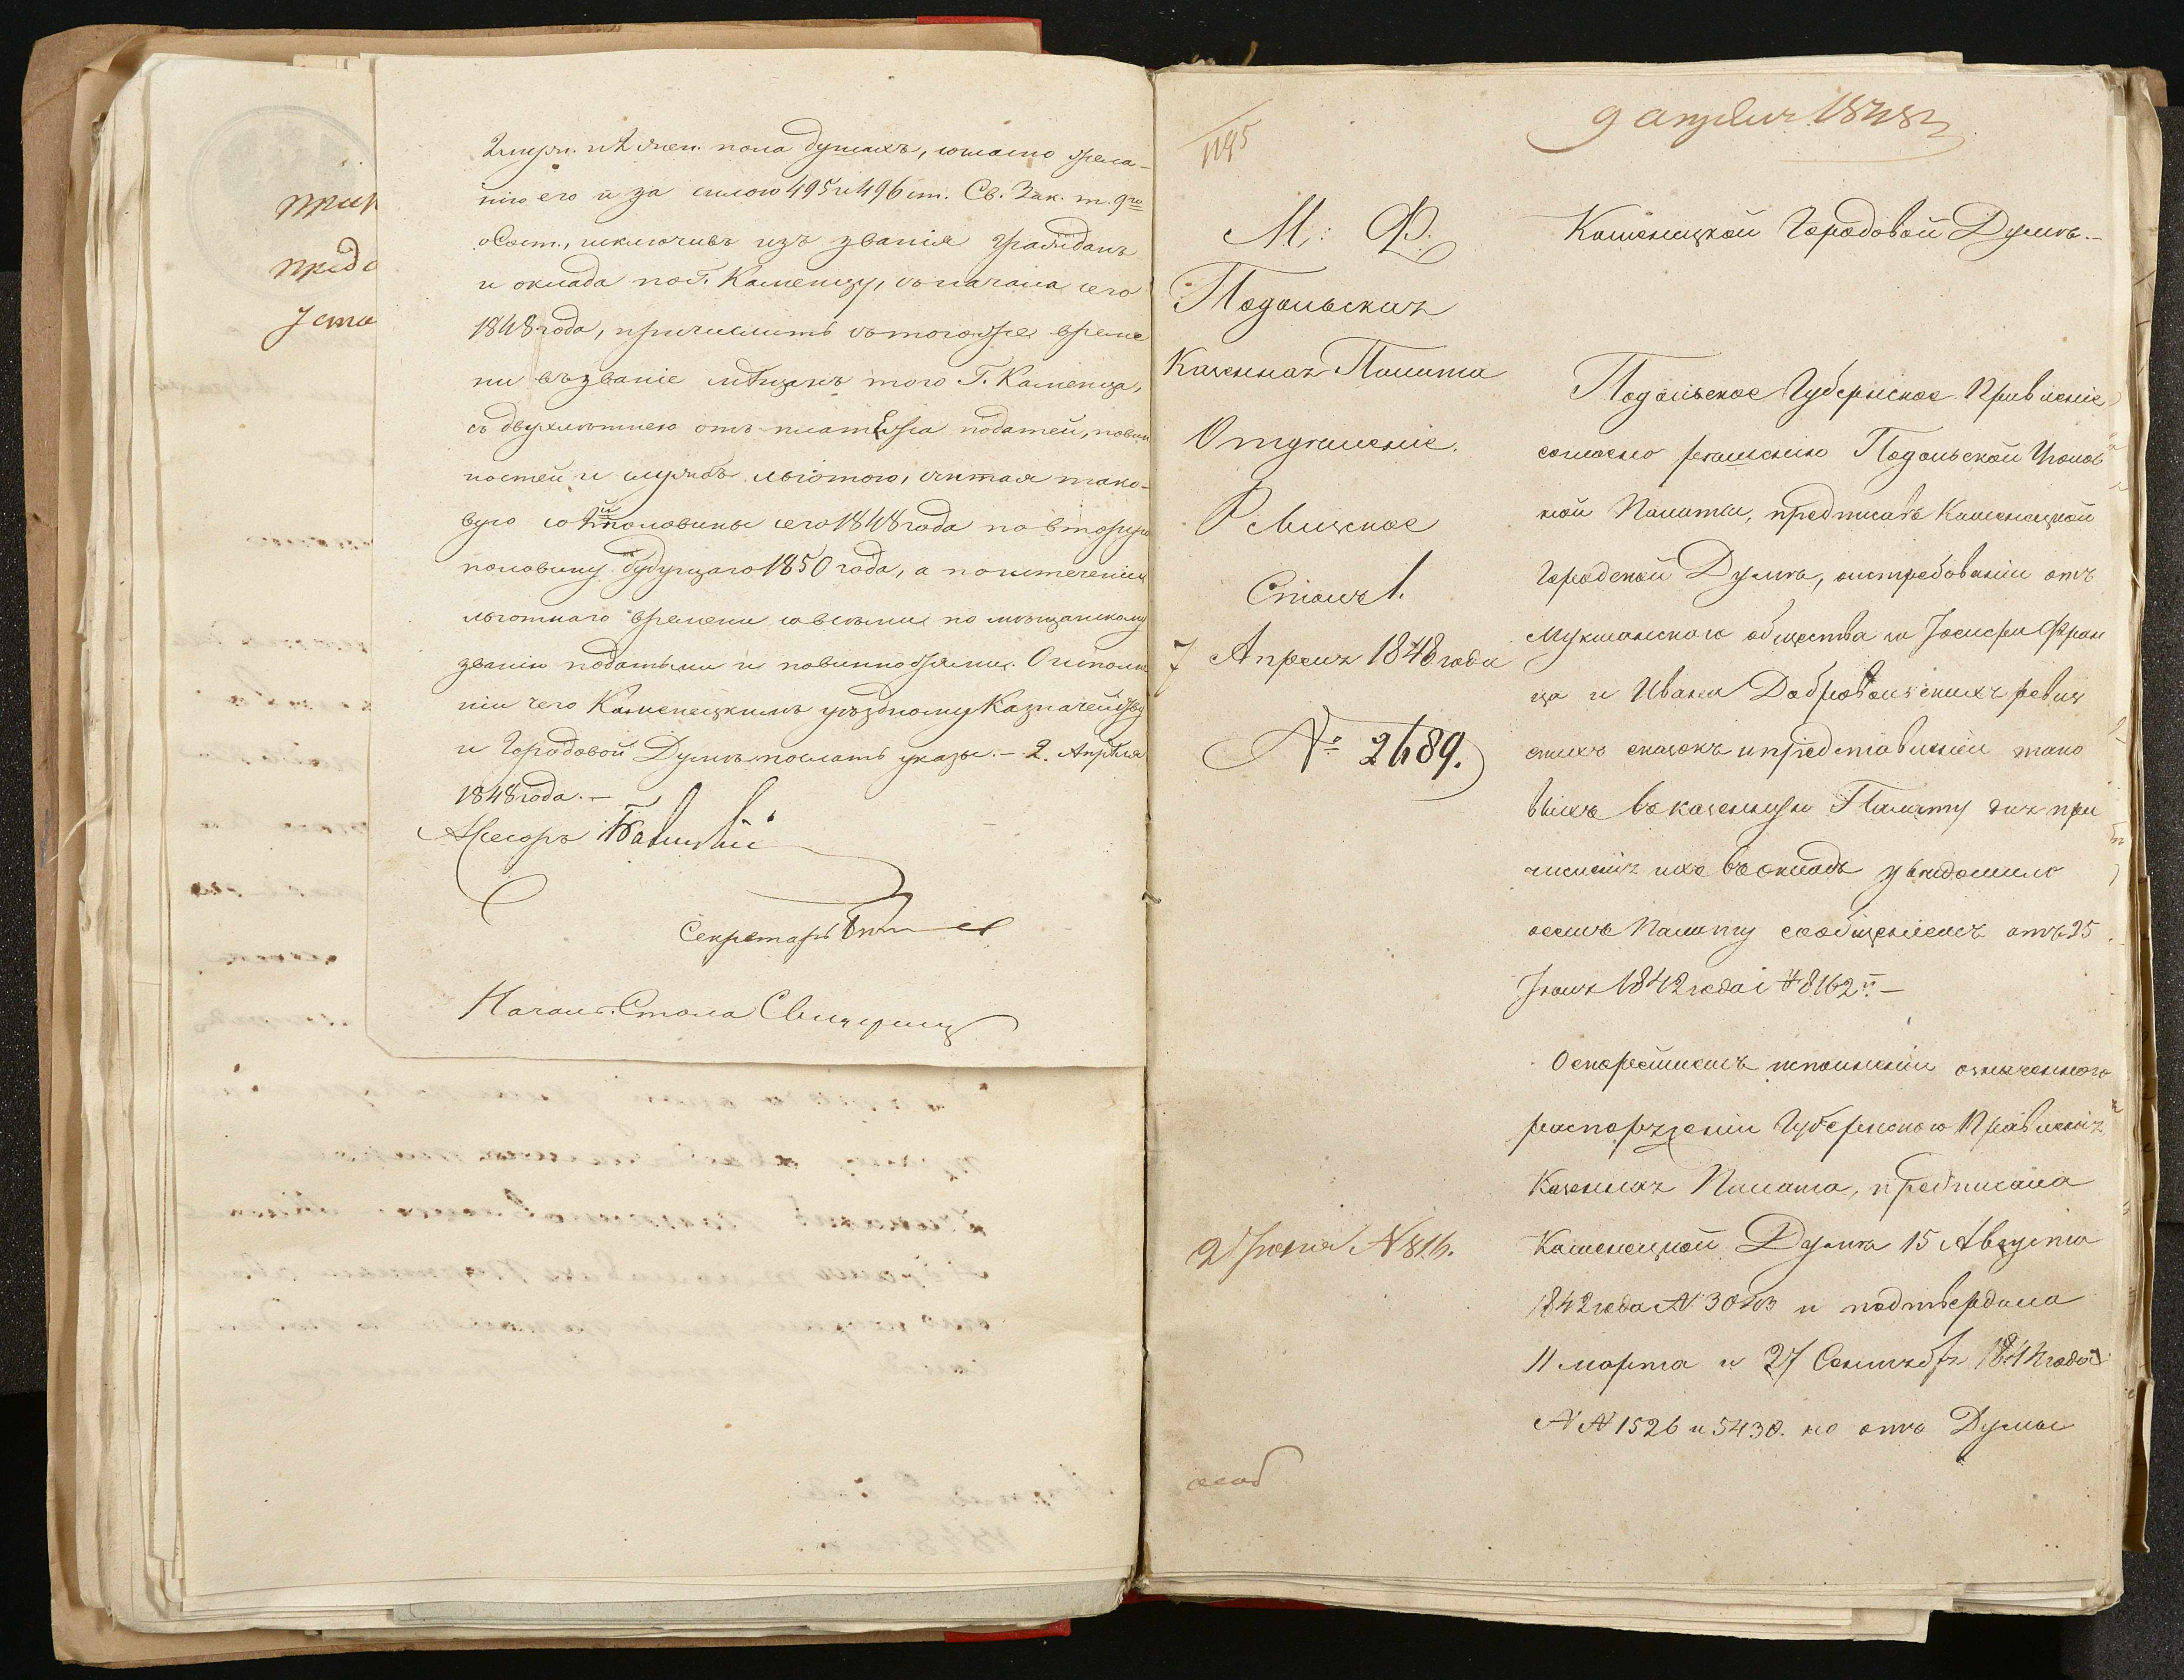 прич
предс
Уста
2 муж. и 2 жен. пола душахъ, согласно жела-
нію его и за силою 495 и 496 ст. Св. Зак. т. 9го
о Сост., исключивъ изъ званія гражданъ
и оклада по Г. Каменцу, съ начала сего
1848 года, причислить съ того же време
ни въ званіе мѣщанъ того Г. Каменца,
съ двухлѣтнею отъ платежа податей, повин
ностей и службъ льготою, считая тако-
вую со 2й половины сего 1848 года по вторую
половину будущаго 1850 года, а по истеченіи
льготнаго времени со всѣми по мѣщанскому
званію податьми и повинностями. О исполне
ніи чего Каменецкимъ уѣздному Казначейству
и Городовой Думѣ послать указы. – 2. Апрѣля
1848 года. –
Асесоръ
Секретарь
Начал. Стола
1195
9 апреля 1848
М: Ф.
Подольская
Казенная Палата
Отделеніе.
Ревизское
Столъ 1.
7 Апреля 1848 года
№ 2689.
№ 816.
Каменецкой Городовой Думѣ. –
Подольское Губернское Правленіе
согласно решенію Подольской Уголов
ной Палаты, предписавъ Каменецкой
Городской Думѣ, о истребованіи отъ
общества Іосифа Фран
ца и Ивана Добровольскихъ ревиз
скихъ сказокъ и представленіи тако
выхъ въ казенную Палату для при
численія ихъ въ окладъ увѣдомило
о семъ Палату сообщеніемъ отъ 25
1842 года № 8162. –
О скорейшемъ исполненіи означеннаго
распоряженія Губернскаго Правленія
Казенная Палата, предписала
Каменецкой Думѣ 15 Августа
1842 года № и подтвердила
11 марта и 27 Сентября 1844 года
№№ 1526 и 5430. но отъ Думы